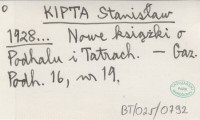 o
KIPTA Stanisław
1928... Nowe książki o
Podhalu i Tatrach. — Gaz.
Podh. 16, nr 19.
BT/025/0792